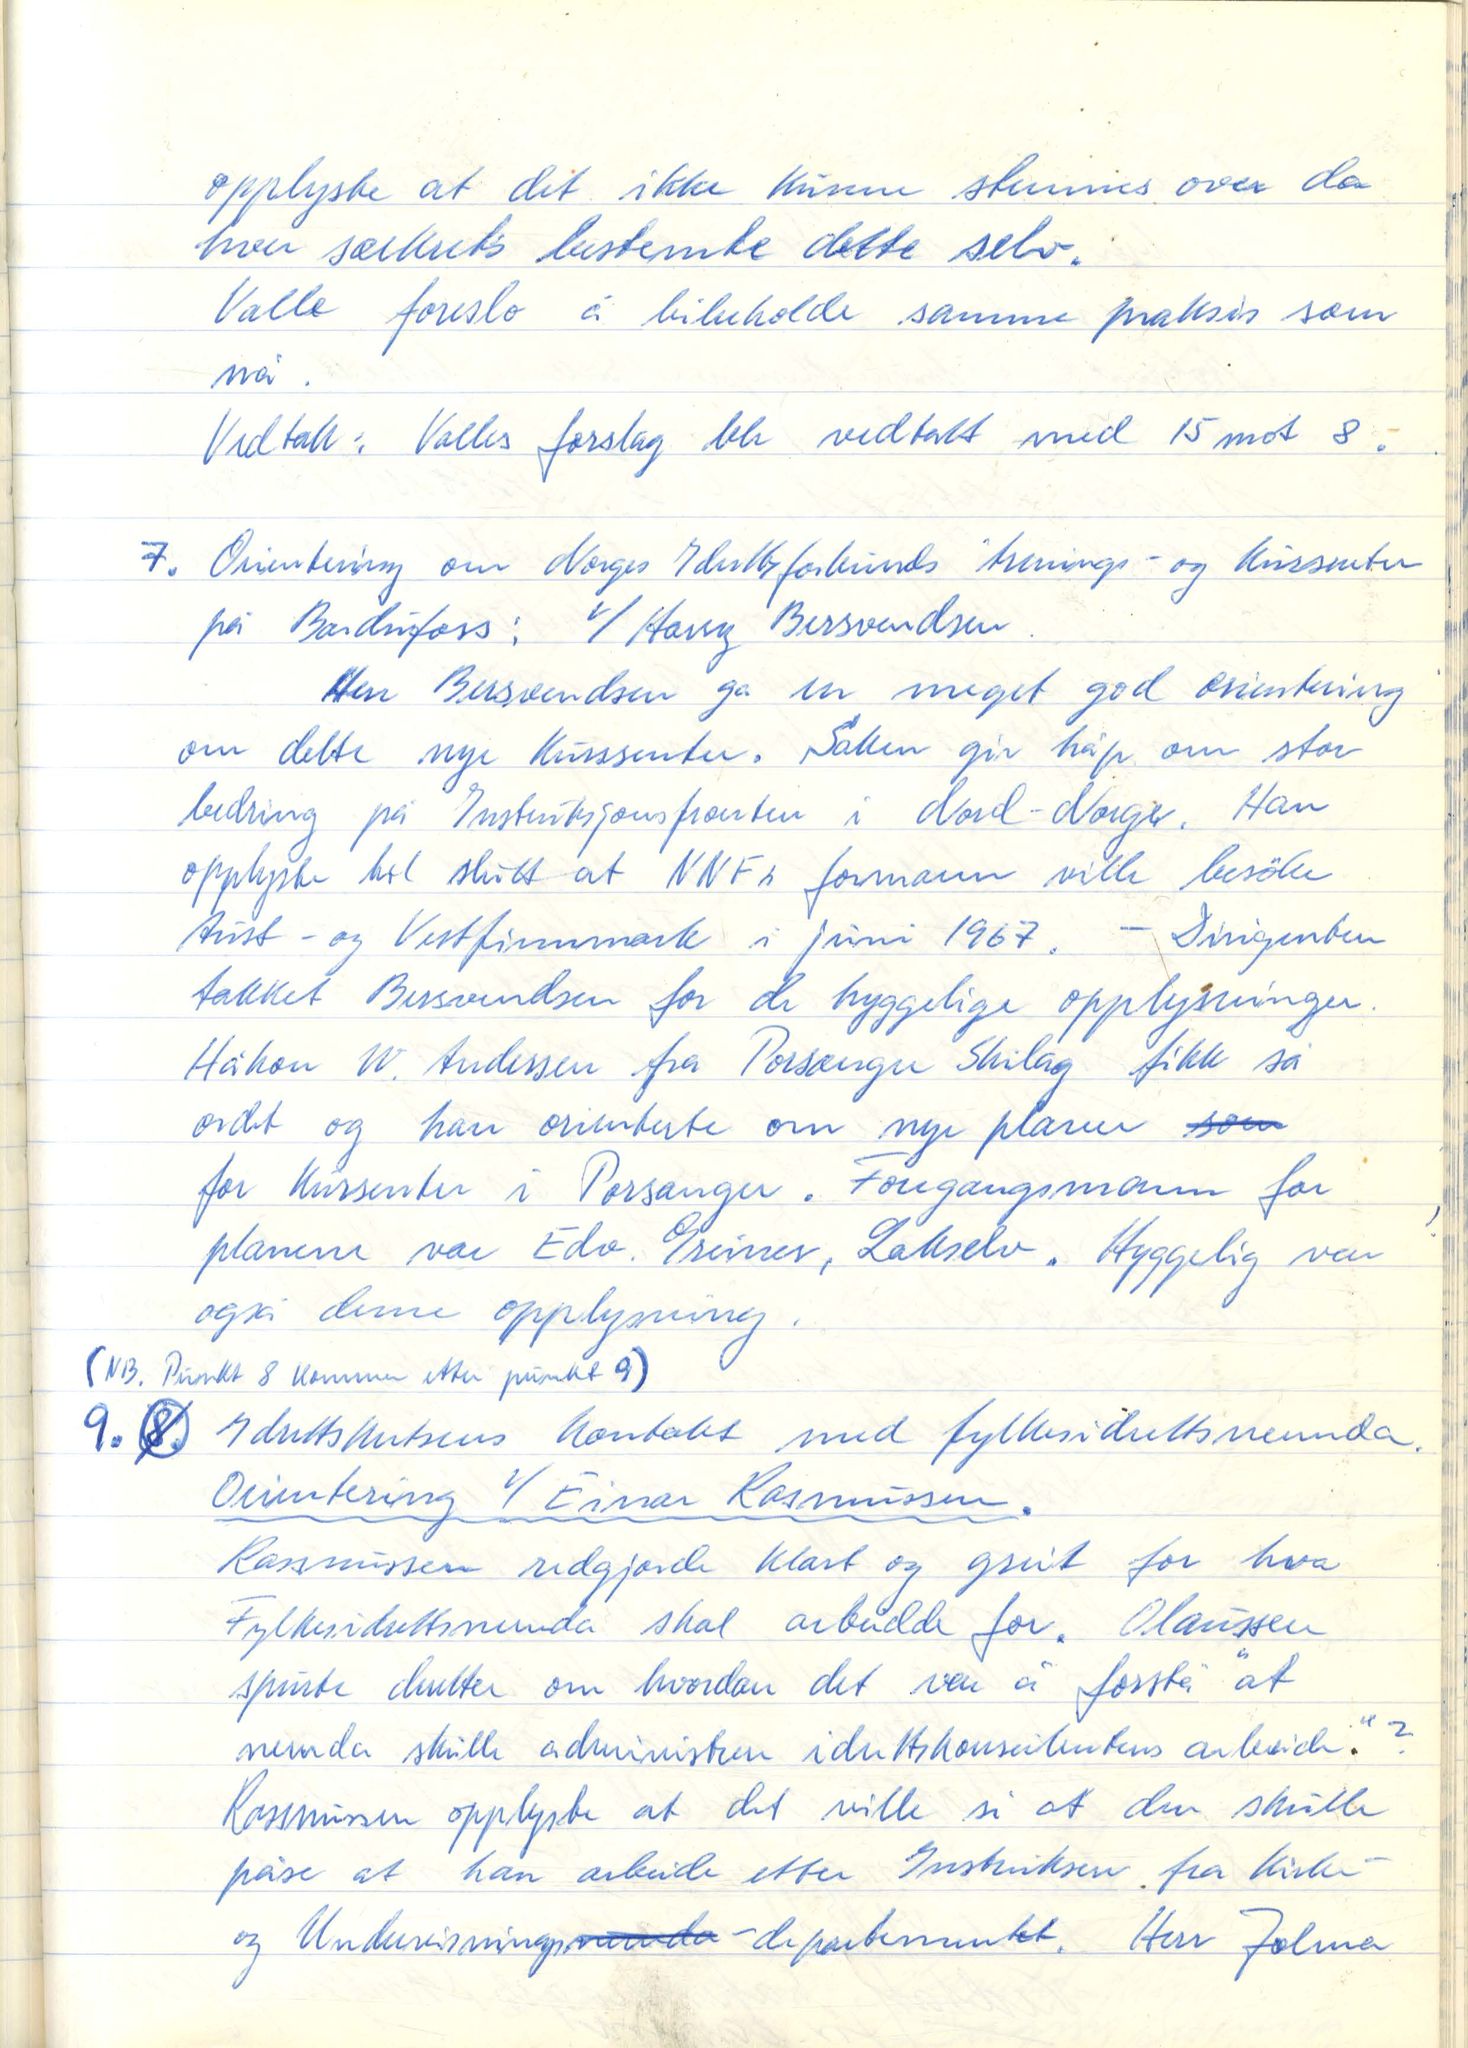 opplyste at det ikke kunne stemmes over da
hver særkrets bestemte dette selv.
Valle foreslo å bibeholde samme praksis som
nå.
Vedtak: Valles forslag ble vedtatt med 15 mot 8.
7. Orientering om Norges Idrettsforbunds trenings- og kurssenter
på Bardufoss: v/ Harry Bersvendsen.
Herr Bersvendsen ga en meget god orientering
om dette nye kurssenter. Saken gir håp om stor
bedring på Instruksjonsfronten i Nord-Norge. Han
opplyste til slutt at NNFs formann ville besöke
Aust- og Vestfinnmark i juni 1967. - Dirigenten
takket Bersvendsen for de hyggelige opplysninger.
Håkon W. Andersen fra Porsanger Skilag fikk så
ordet og han orienterte om nye planer som
for kurssenter i Porsanger. Foregangsmann for
planene var Edv. Greiner, Lakselv. Hyggelig var
også denne opplysning.
(NB. Punkt 8 kommer etter punkt 9)
9. 8. Idrettskretsens kontakt med fylkesidrettsnemnda.
Orientering v/ Einar Rasmussen.
Rasmussen redgjorde klart og greit for hva
Fylkesidrettsnemnda skal arbeidde for. Olaussen
spurte deretter om hvordan det var å forstå "at
nemnda skulle administrere idrettskonsulentens arbeide."?
Rasmussen opplyste at det ville si at den skulle
påse at han arbeide etter Instruksen fra Kirke-
og Undervisningsnemnda-departementet. Herr Jolma